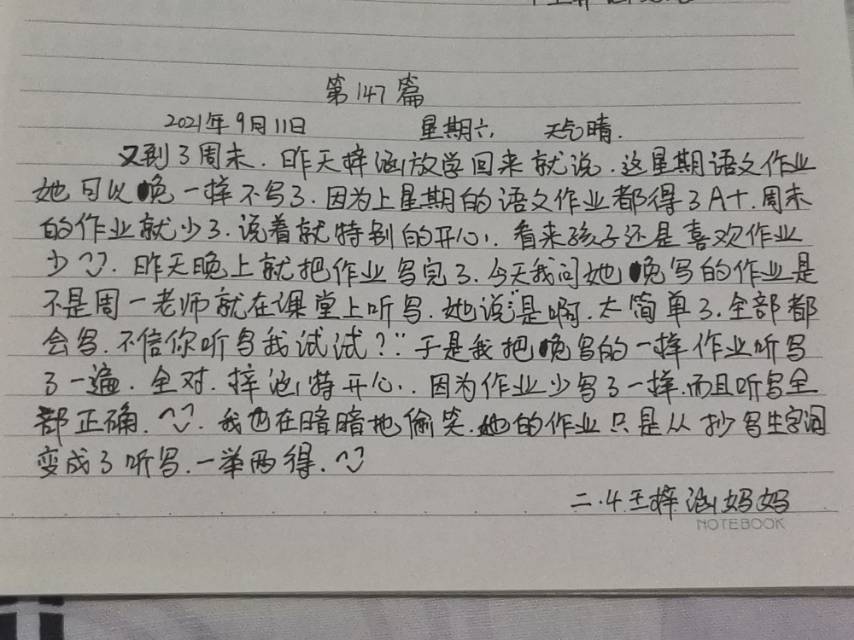 第147篇
2021年9月11日 星期六 天气晴.
又到了周末.昨天梓涵放学回来就说.这星期语文作业
她可以晚一样不写了.因为上星期的语文作业都得了A+.周末
的作业就少了.说着就特别的开心.看来孩子还是喜欢作业
少.昨天晚上就把作业写完了.今天我问她晚写的作业是
不是周一老师就在课堂上听写.她说:"是啊.太简单了.全部都
会写.不信你听写我试试?"于是我把晚写的一样作业听写
了一遍.全对.梓涵特开心.因为作业少写了一样.而且听写全
都正确.我也在暗暗地偷笑.她的作业只是从抄写生字词
变成了听写.一举两得.
二.4王梓涵妈妈
NOTEBOOK